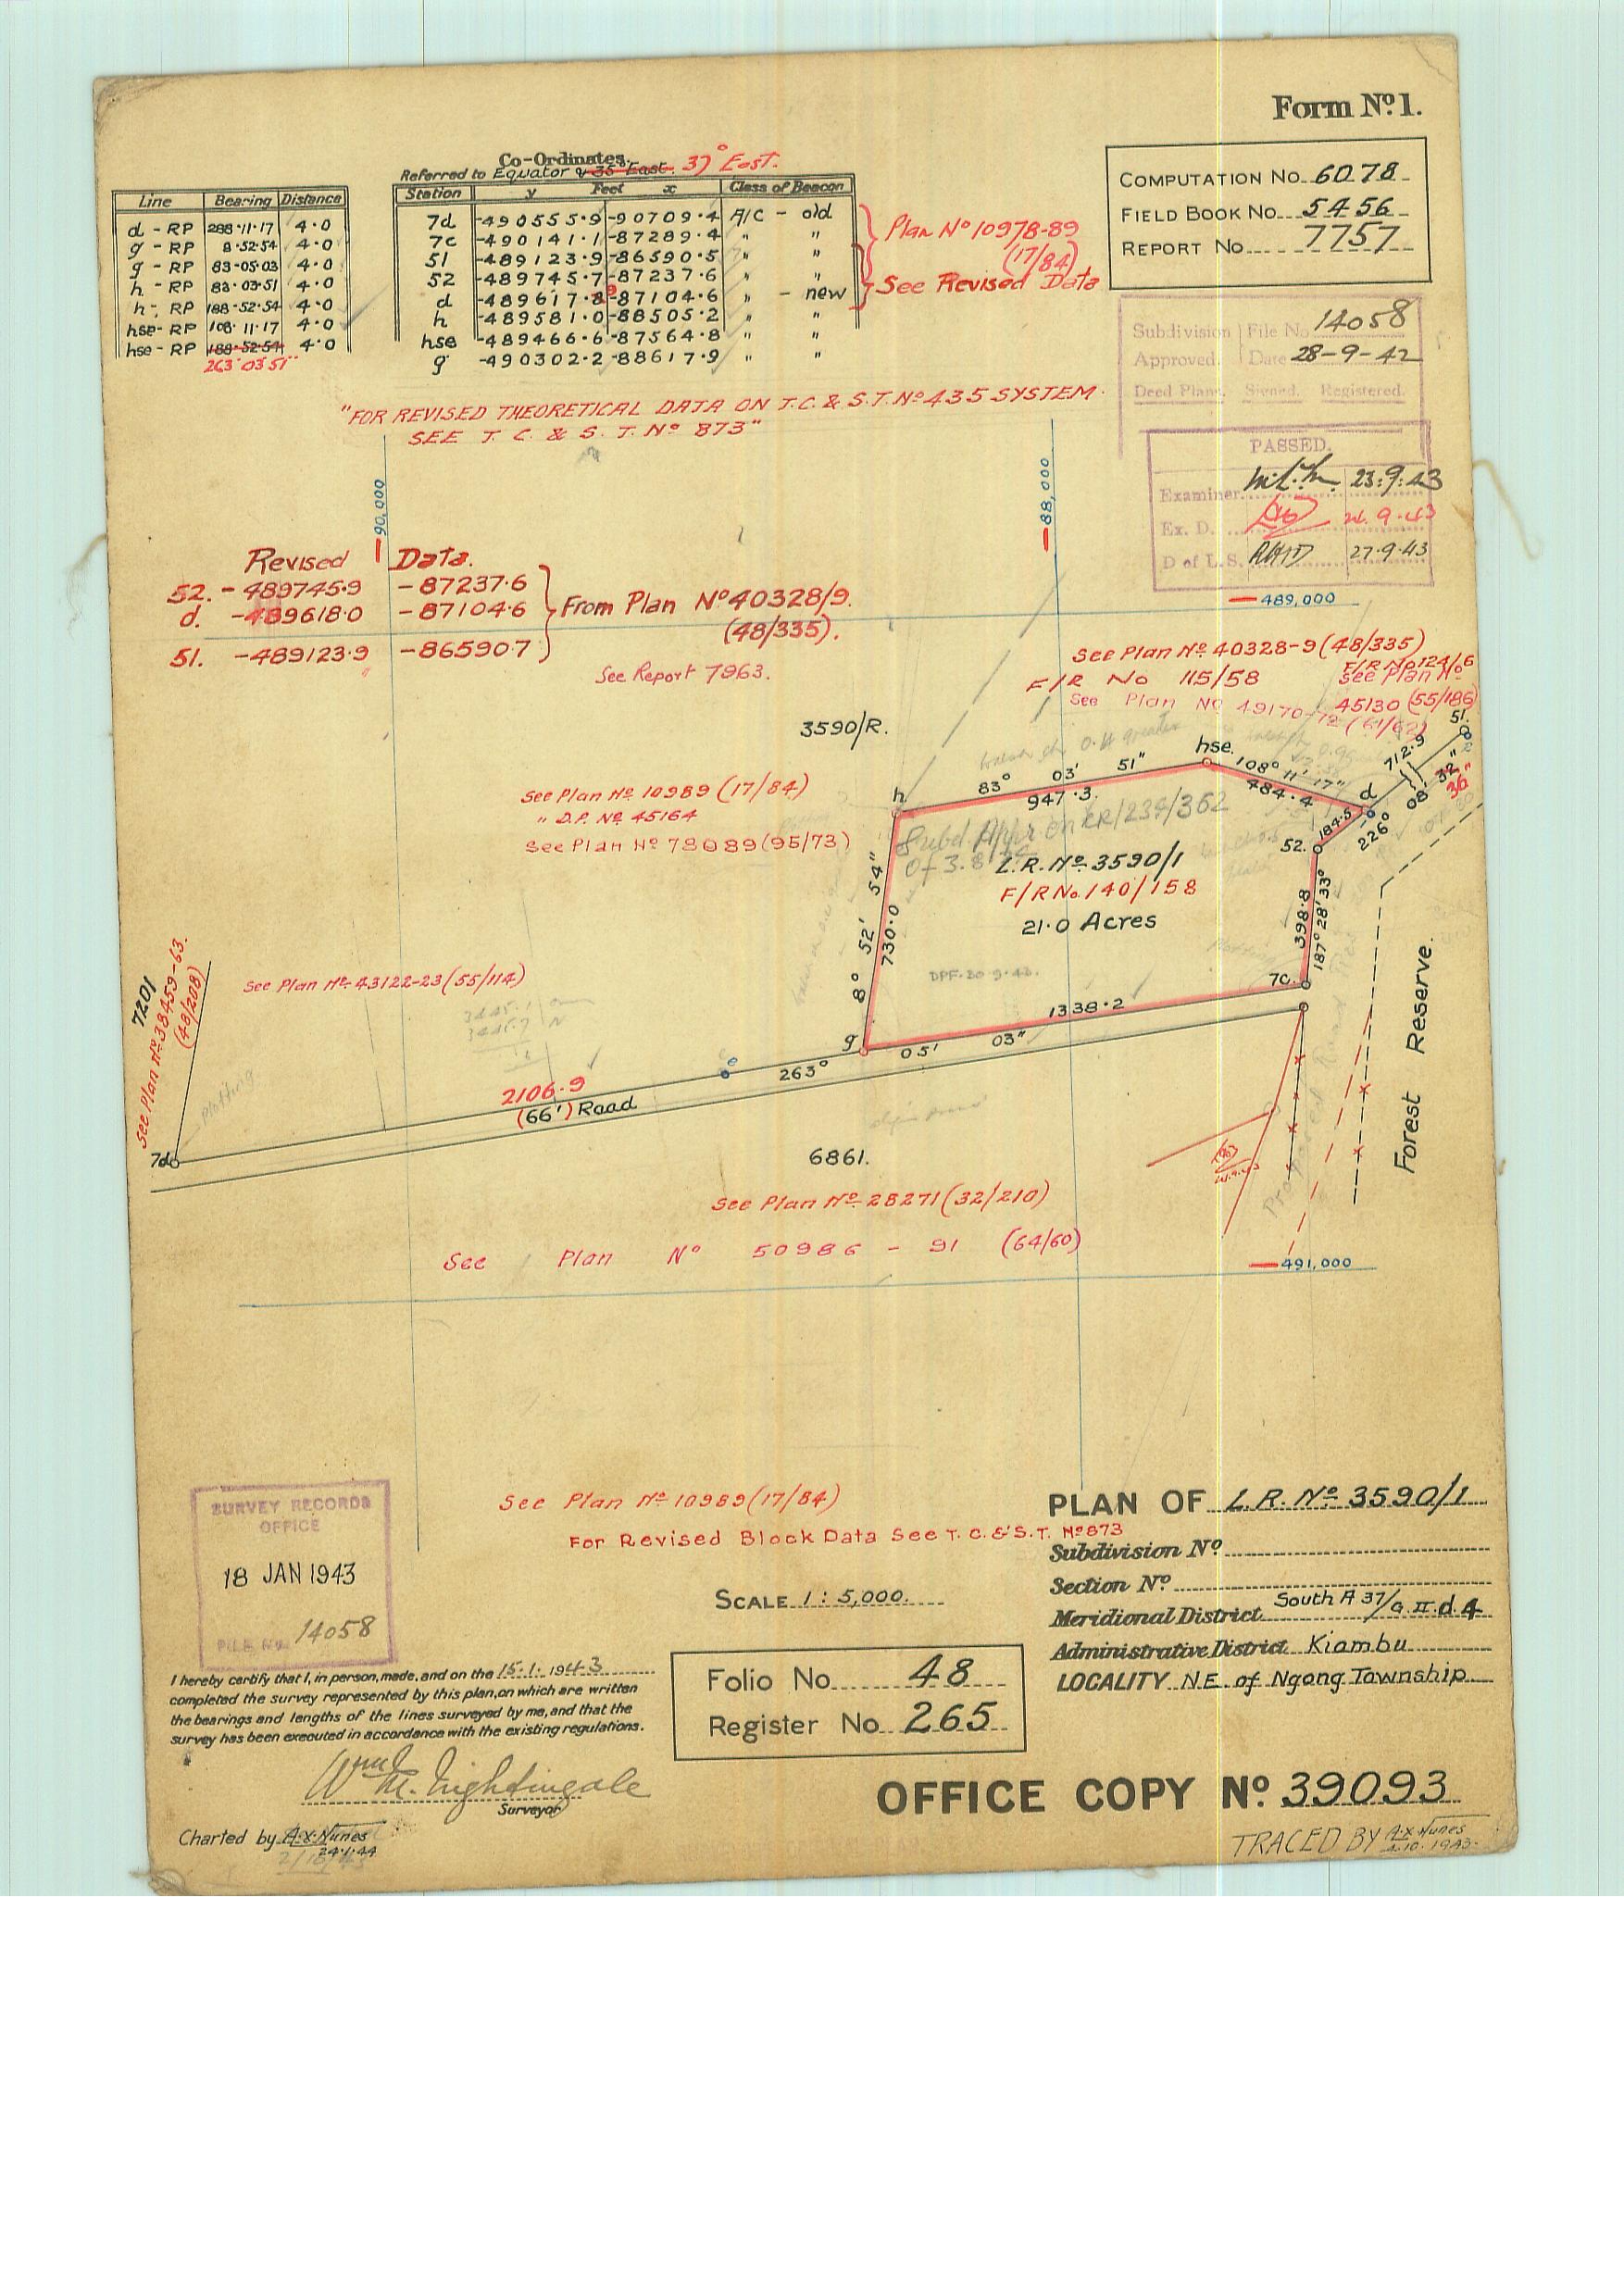 Form Nº 1.
COMPUTATION No. 6078
FIELD BOOK No. 5456
REPORT No. 7757
Co-Ordinates.
Referred to Equator & 35° East. 37° East.
Line Bearing Distance
d - RP 288·11·17 4·0
g - RP 8·52·54 4·0
g - RP 83·05·03 4·0
h - RP 83·03·51 4·0
h - RP 188·52·54 4·0
hse - RP 108·11·17 4·0
hse - RP 188·52·54 4·0
263°03'51"
Station y Feet x Class of Beacon
7d -490555·9 -90709·4 A/C - old
7c -490141·1 -87289·4 " "
51 -489123·9 -86590·5 " "
52 -489745·7 -87237·6 " "
9
d -489617·8 -87104·6 " - new
h -489581·0 -88505·2 " "
hse -489466·6 -87564·8 " "
g -490302·2 -88617·9 " "
Plan Nº 10978-89
(17/84)
See Revised Data
Subdivision File No. 14058
Approved. Date 28-9-42
Deed Plans. Signed. Registered.
PASSED.
Examiner. 23·9·43
Ex. D. 24·9·43
D of L.S. 27·9·43
"FOR REVISED THEORETICAL DATA ON T.C. & S.T. Nº 435 SYSTEM
SEE T. C. & S. T. Nº 873"
-90,000
-88,000
-489,000
Revised Data.
52. -489745·9 -87237·6
d. -489618·0 -87104·6
51. -489123·9 -86590·7
From Plan Nº 40328/9.
(48/335).
See Report 7963.
See Plan Nº 40328-9 (48/335)
F/R No 124/6
F/R No 115/58
See Plan Nº
45130 (55/186)
See Plan Nº 49170-72 (61/62)
3590/R.
See Plan Nº 10989 (17/84)
" D.P. Nº 45164
See Plan Nº 78089 (95/73)
h
83° 03' 51"
947·3
hse.
108° 11' 17"
484·4
d
712·9
51.
226° 08' 32"
36"
184·5
52.
398·8
187° 28' 33"
7c.
8° 52' 54"
730·0
L.R. Nº 3590/1
F/R No. 140/158
21·0 Acres
DPF·20·9·43.
1338·2
g
263° 05' 03"
2106·9
(66') Road
7d
7201
See Plan Nº 38459-63.
(48/208)
See Plan Nº 43122-23 (55/114)
plotting
Forest Reserve.
6861.
See Plan Nº 28271 (32/210)
See Plan Nº 50986 - 91 (64/60)
-491,000
SURVEY RECORDS
OFFICE
18 JAN 1943
FILE No. 14058
See Plan Nº 10989 (17/84)
For Revised Block Data See T. C. & S. T. Nº 873
SCALE 1 : 5,000.
PLAN OF L.R. Nº 3590/1
Subdivision Nº
Section Nº
Meridional District South A 37/G. II. d. 4
Administrative District Kiambu
LOCALITY N.E. of Ngong Township
I hereby certify that I, in person, made, and on the 15·1·1943
completed the survey represented by this plan, on which are written
the bearings and lengths of the lines surveyed by me, and that the
survey has been executed in accordance with the existing regulations.
Wm M. Nightingale
Surveyor
Folio No. 48
Register No. 265
Charted by A.X. Nunes
24·1·44
OFFICE COPY Nº 39093
TRACED BY A.X Nunes
4.10.1943.